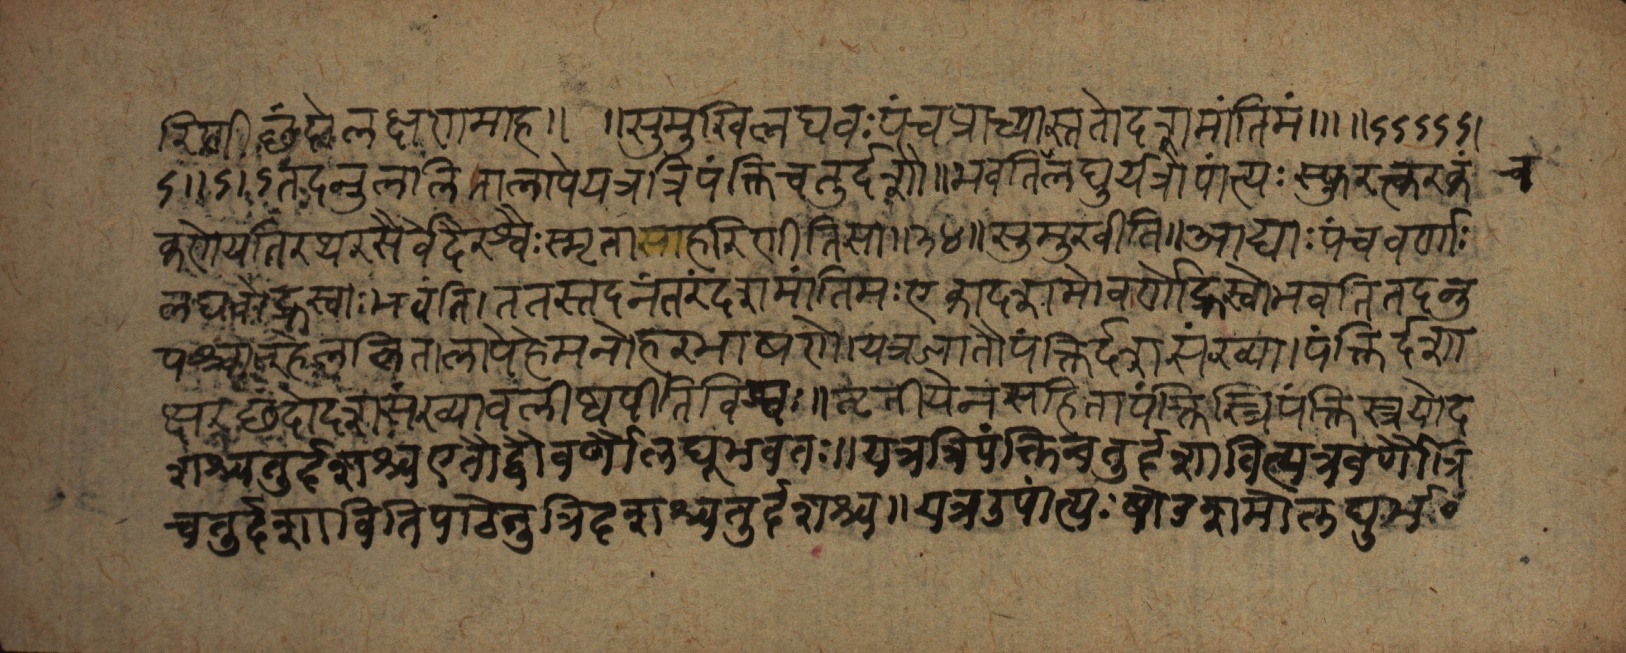 रिणी छंदोलक्षणमाह॥ ॥सुमुखिलघवःपंचप्राच्यास्ततोदशमांतिमं॥।॥ऽऽऽऽऽ।
ऽ॥ऽ।ऽतदनुललितालापेयत्रत्रिपंक्तिचतुर्दशौ॥भवतिलघुर्यत्रोपांत्यःस्फुरत्करकं च
कणेयतिरथरसैर्वेदैरश्वैःस्मृतासाहरिणीतिसा॥३४॥सुमुखीति॥आद्याःपंचवर्णाः
लघवोह्रस्वाःभवंति।ततस्तदनंतरंदशमांतिमःएकादशमोवर्णोह्रस्वोभवतितदनु
पश्चात्हेललितालापेहेमनोहरभाषणे।यत्रजातौपंक्तिर्दशसंख्या।पंक्तिर्दशा
क्षरछंदोदशसंख्यावलीष्वपीतिविश्वः॥तृतीयेनसहितापंक्तिस्त्रिपंक्तिस्त्रयोद
शश्चतुर्दशश्चएतौद्वौवर्णौलघूभवतः॥यत्रत्रिपंक्तिचतुर्दशावित्यत्रवर्णौत्रि
चतुर्दशावितिपाठेतुत्रिदशश्चतुर्दशश्च॥यत्रउपांत्यःषोडशमोलघुर्भ॰